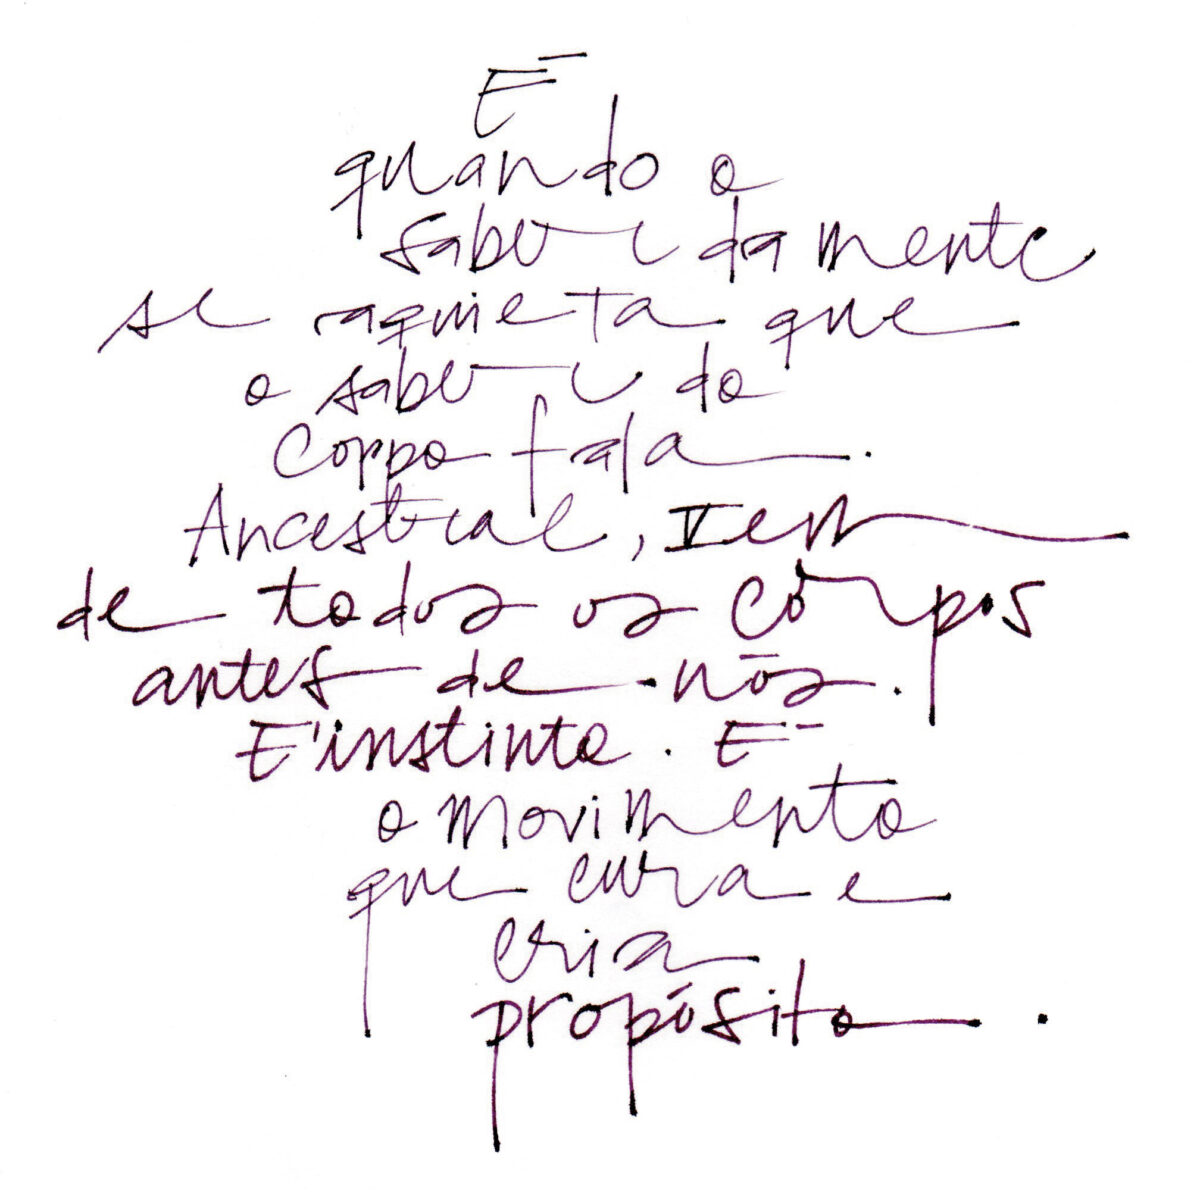 É
quando o
saber da mente
se aquieta que
o saber do
corpo fala.
Ancestral, vem
de todos os corpos
antes de nós.
É instinto. É
o movimento
que cura e
cria
propósito.